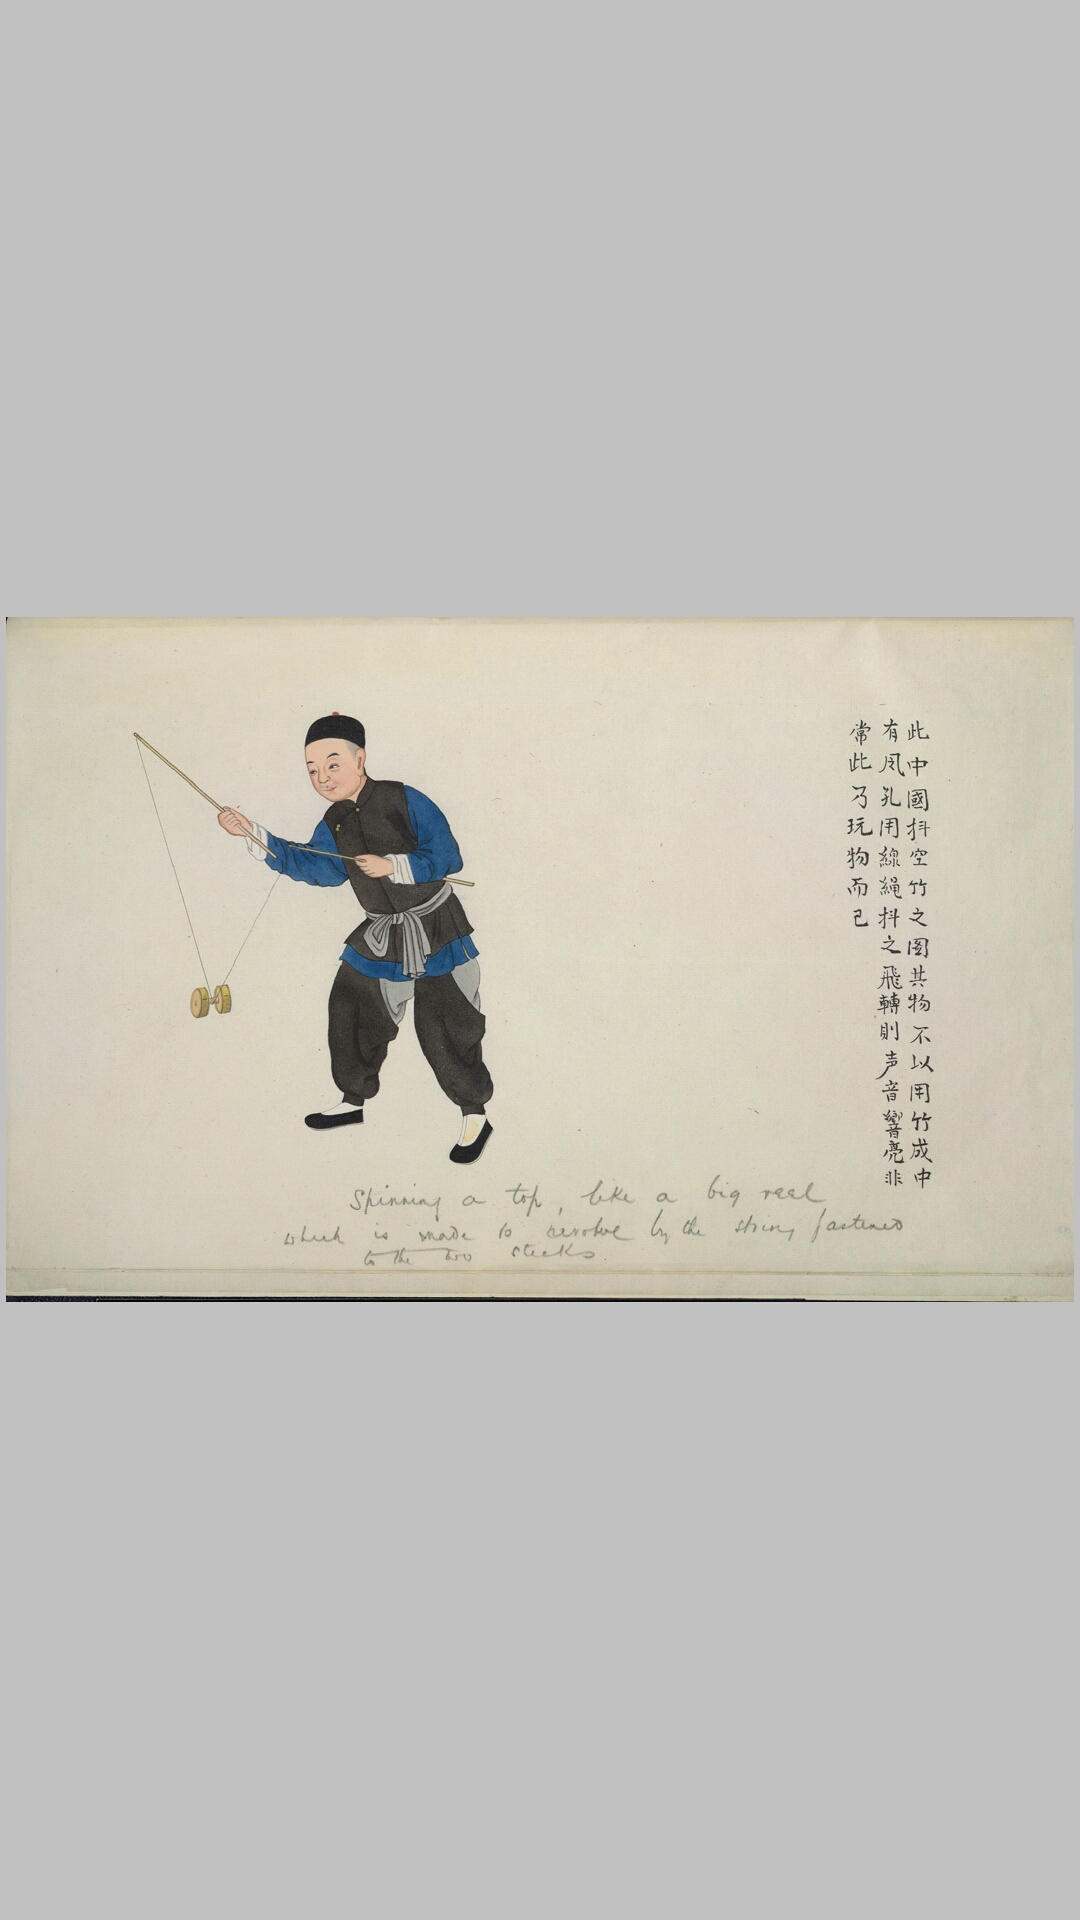 此中國抖空竹之图其物不以用竹成中
有风孔用線繩抖之飛轉則声音響亮非
常此乃玩物而已
Spinning a top, like a big reel
which is made to revolve by the string fastened
to the two sticks.